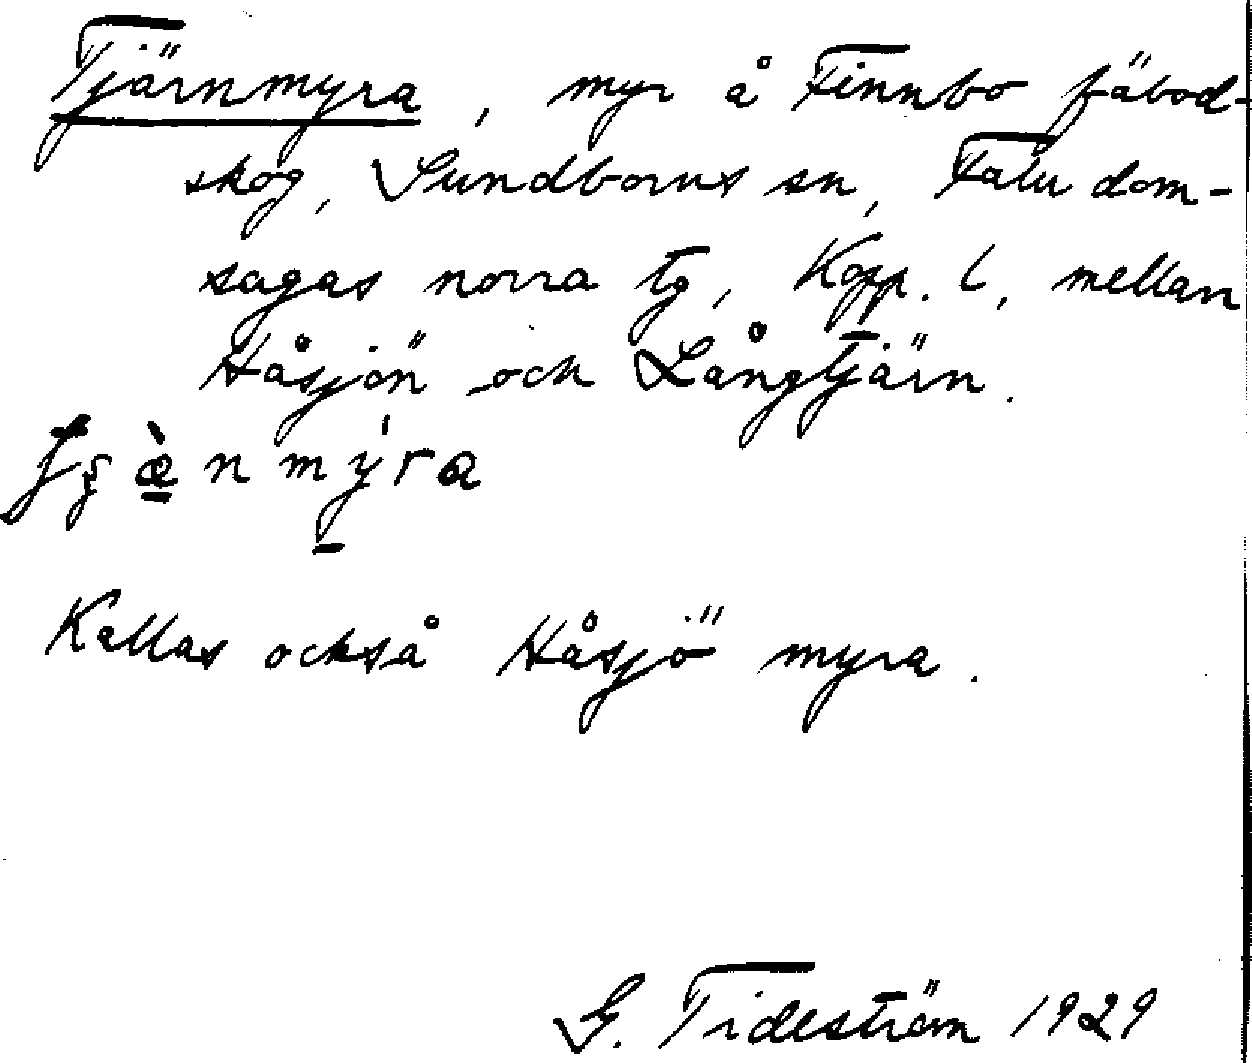 Tjärnmyra, myr å Finnbo fäbod-
skog, Sundborns sn, Falu dom-
sagas norra tg, Kopp. l, mellan
Håsjön och Långtjärn.
nmýra
Kallas också Håsjö myra.
G. Tideström 1929